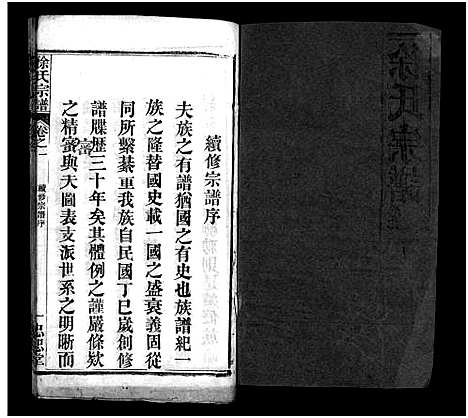 徐氏宗譜
續修宗譜序
夫族之有譜猶國之有史也族譜紀一
族之隆替國史載一國之盛衰義固從
同所繫綦重我族自民國丁巳歲創修
譜牒歷三十年矣其體例之謹嚴條欵
之精蜜與夫圖表支派世系之明晰而
密
徐氏宗譜
卷之一
續修宗譜序
一